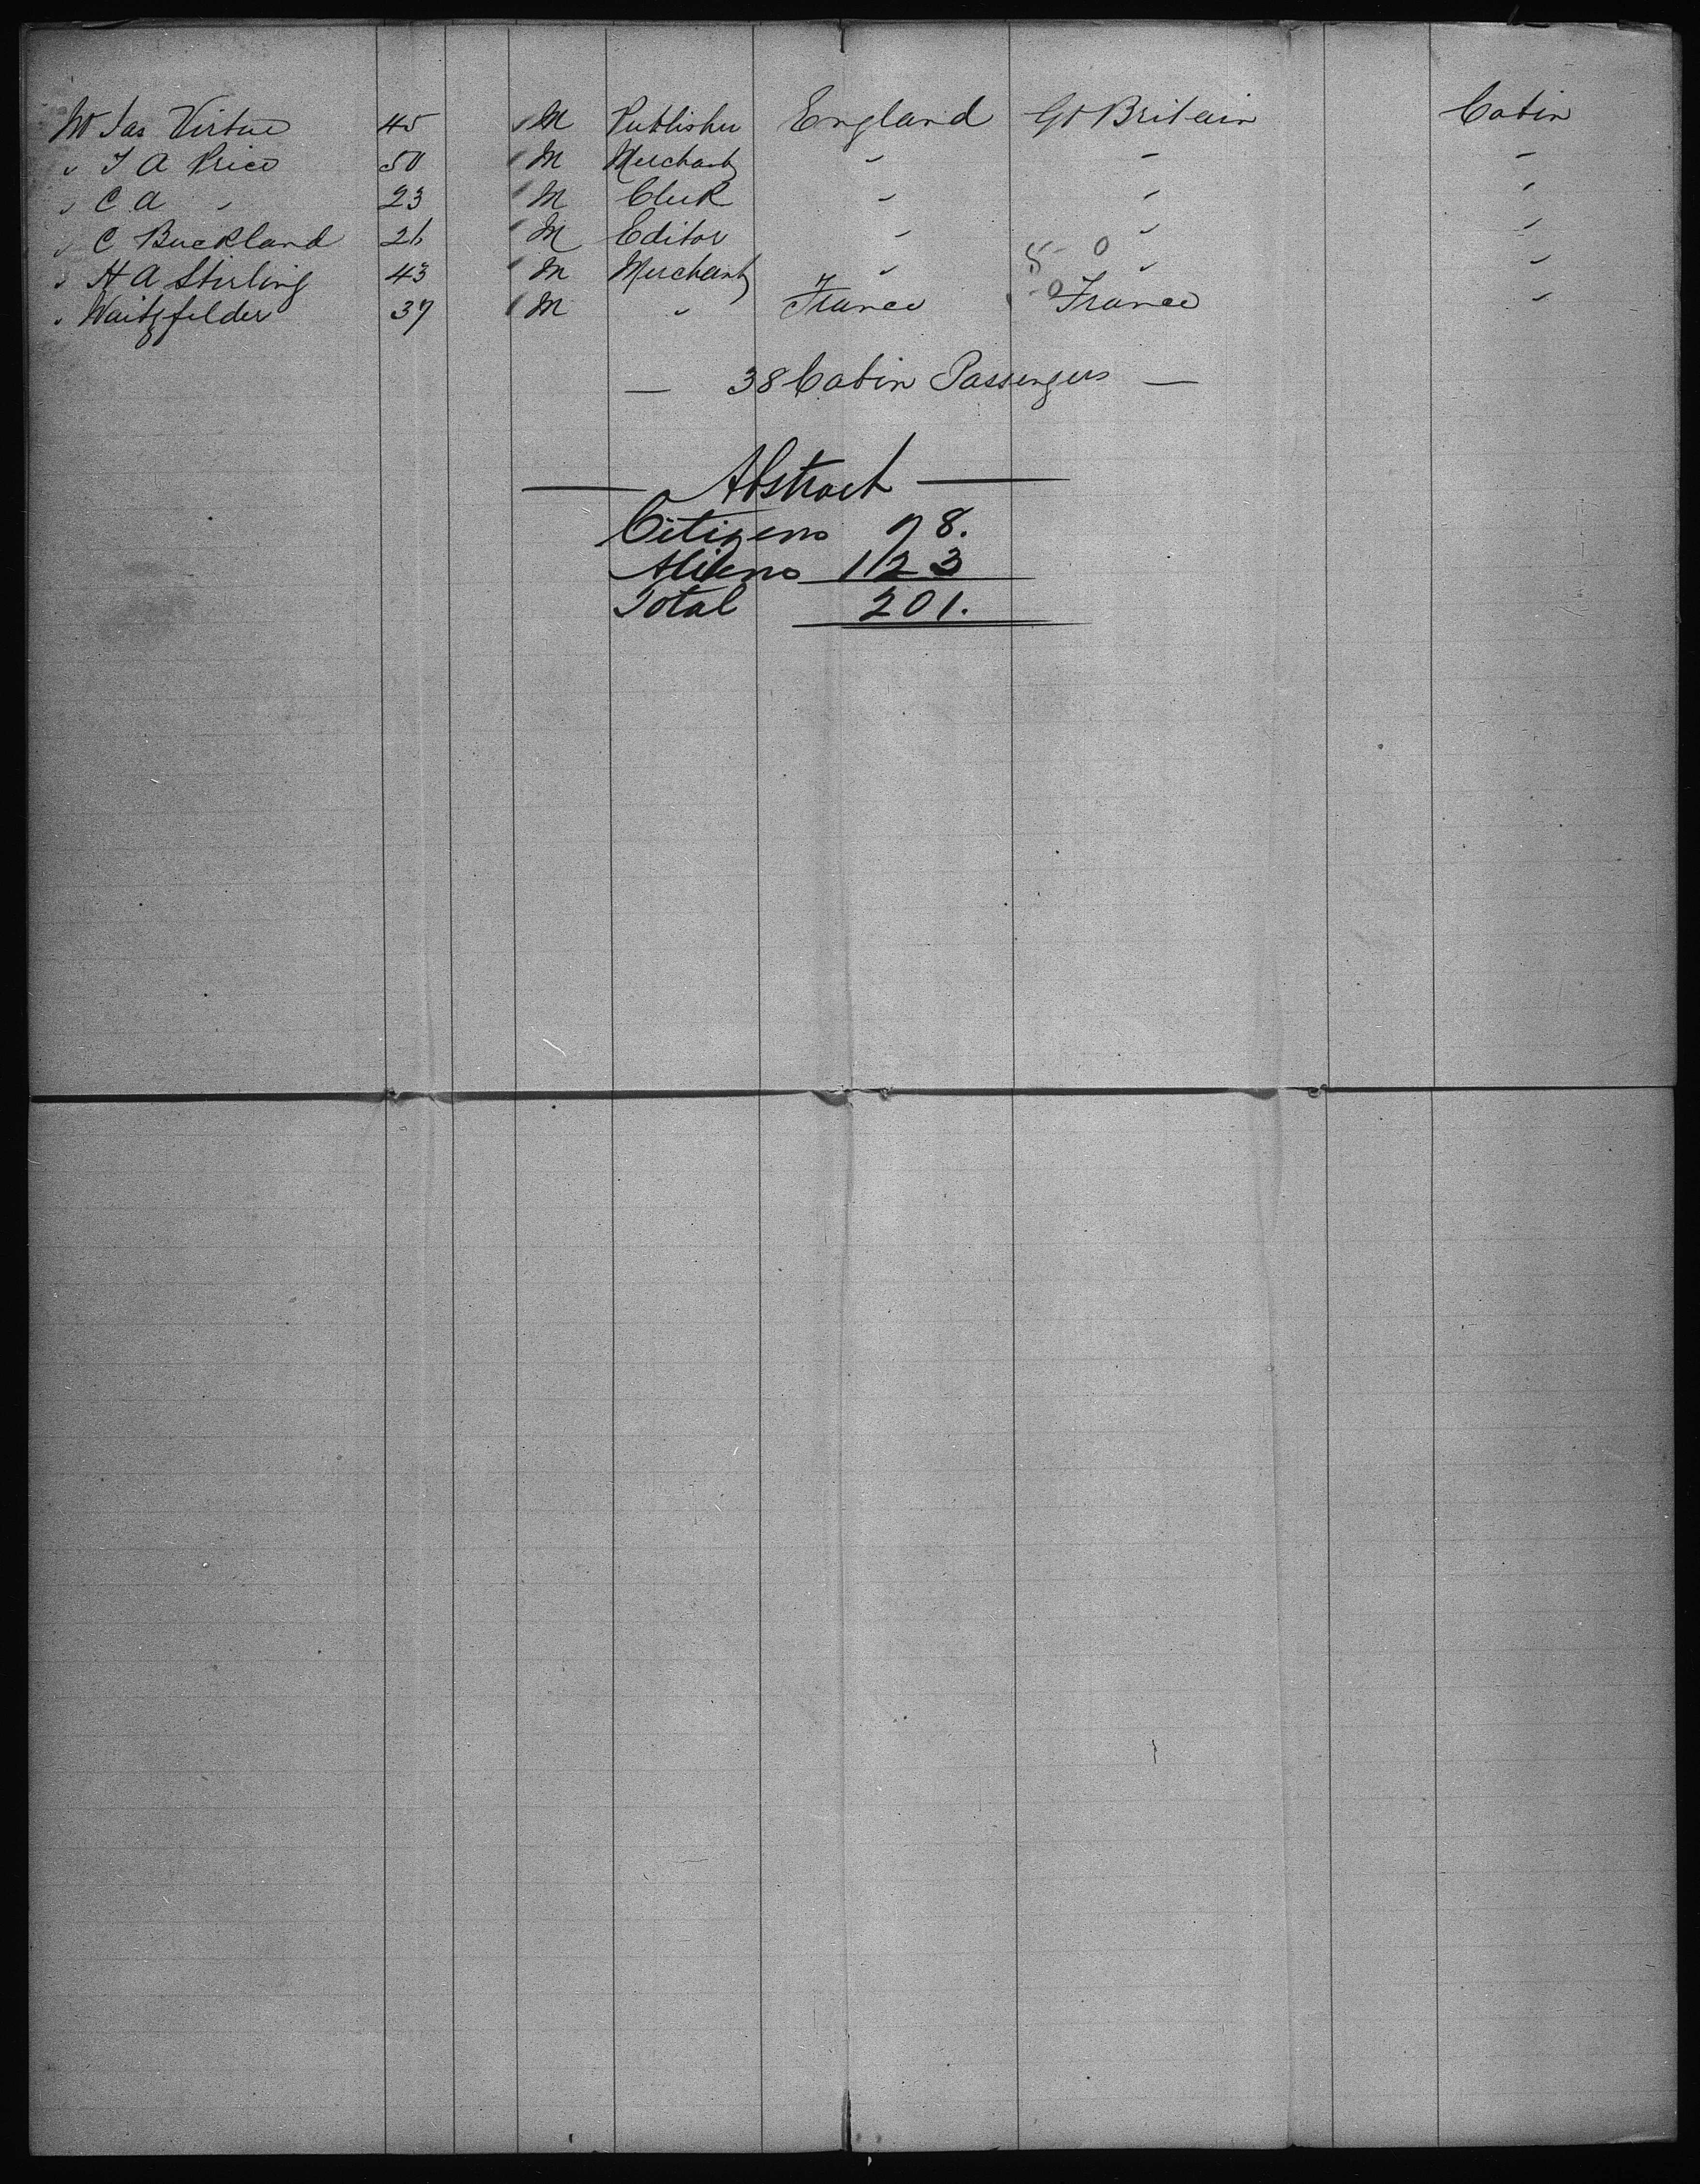 Mr Jas Virtue 45 M Publisher England Gt Britain Cabin
" T A Price 50 M Merchant " " "
" C A " 23 M Clerk " " "
" C Buckland 26 M Editor " " "
" H A Stirling 43 M Merchant " " "
" Waitzfelder 37 M " France France "
— 38 Cabin Passengers —
— Abstract —
Citizens 78.
Aliens 123
Total 201.